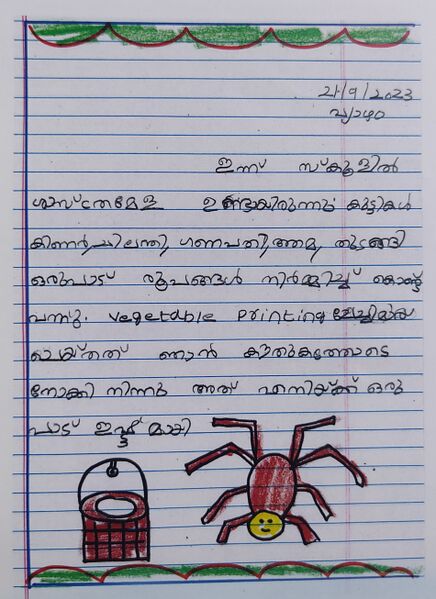 21/9/2023
വ്യാഴം
ഇന്ന് സ്കൂളിൽ
ശാസ്ത്രമേള ഉണ്ടായിരുന്നു കുട്ടികൾ
കിണർ, ചിലന്തി, ഗണപതി, ആമ, തുടങ്ങി
ഒരുപാട് രൂപങ്ങൾ നിർമ്മിച്ച് കൊണ്ട്
വന്നു. Vegetable Printing
ചെയ്തത് ഞാൻ കൗതുകത്തോടെ
നോക്കി നിന്നു അത് എനിയ്ക്ക് ഒരു
പാട് ഇഷ്ട്ടമായി